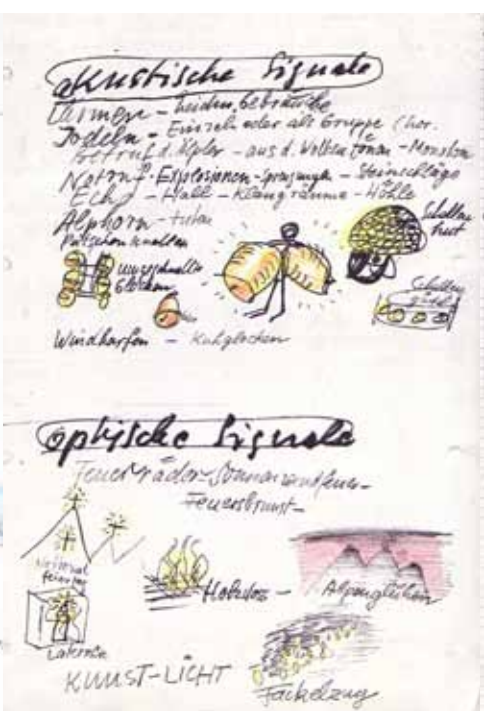 akustische Signale
Lärmen - heidn. Gebräuche
Jodeln - Einzeln oder als Gruppe / Chor
Betruf d. Älpler - aus d. Wolken tönen -
Notruf - Explosionen - Sprengungen - Steinschläge
Echo - Hall - Klangräume - Höhle
Alphorn - tuten
Schellen
hut
Peitschenknallen
umgeschnallte
Glocken
Schellen
gürtel
Windharfen - Kuhglocken
optische Signale
Feuerräder - Sonnenwendfeuer -
Feuersbrunst -
National
feiertag
Holzstoss - Alpenglühen
Laterne
KUNST-LICHT
Fackelzug